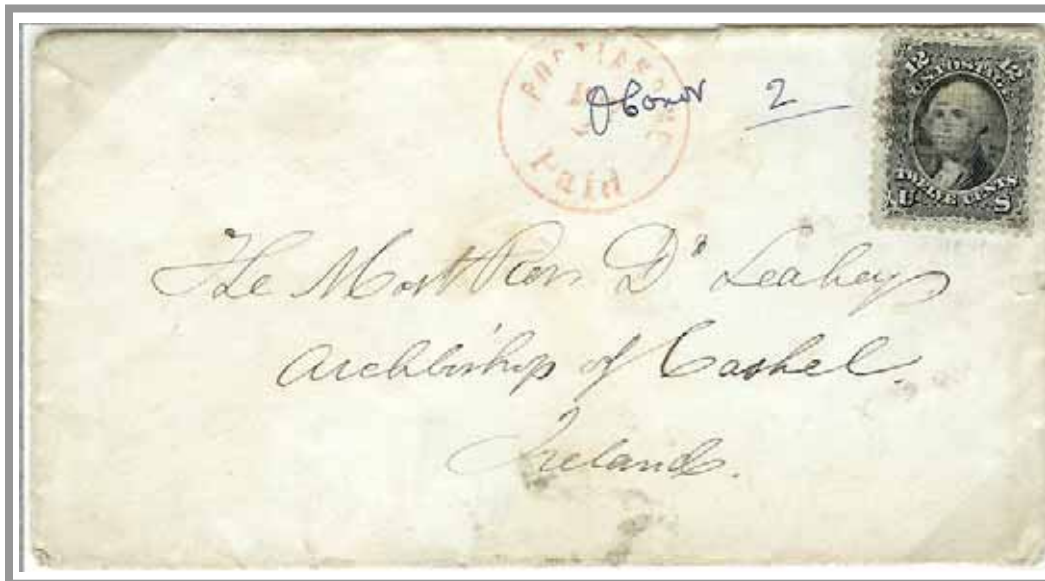 Paid
OConor 2
12 12
U.S. POSTAGE
TWELVE CENTS
U S
The Most Rev. Dr Leahey
Archbishop of Cashel.
Ireland.